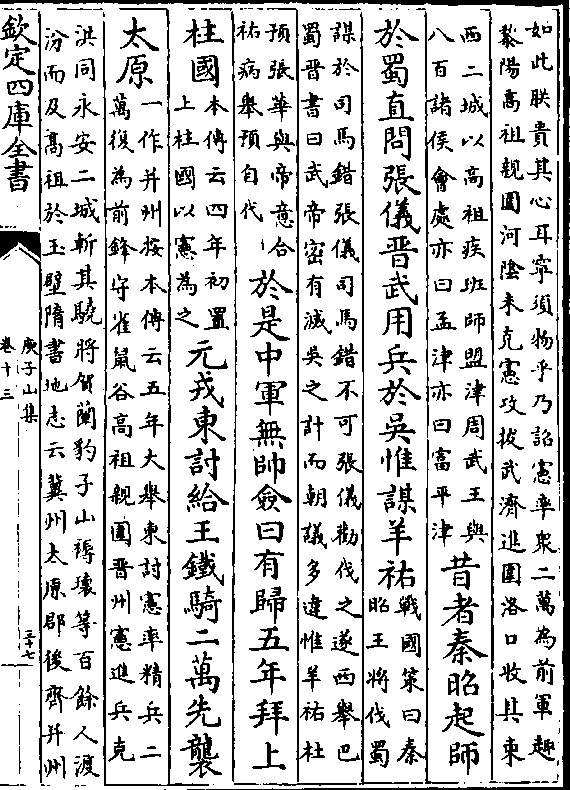 如此朕貴其心耳寧須物乎乃詔憲率衆二萬為前軍趣
黎陽高祖親圍河陰未克憲攻拔武濟進圍洛口收其東
西二城以高祖疾班師盟津周武王與
八百諸侯會處亦曰孟津亦曰富平津
昔者秦昭起師
於蜀直問張儀晉武用兵於吳惟謀羊祜
戰國策曰秦
昭王將伐蜀
謀於司馬錯張儀司馬錯不可張儀勸伐之遂西舉巴
蜀晉書曰武帝密有滅吳之計而朝議多違惟羊祜杜
預張華與帝意合
祜病舉預自代
於是中軍無帥僉曰有歸五年拜上
柱國
本傳云四年初置
上柱國以憲為之
元戎東討給王鐵騎二萬先襲
太原
一作并州按本傳云五年大舉東討憲率精兵二
萬復為前鋒守雀鼠谷高祖親圍晉州憲進兵克
洪同永安二城斬其驍將賀蘭豹子山褥瓌等百餘人渡
汾而及高祖於玉壁隋書地志云冀州太原郡後齊并州
欽定四庫全書
庾子山集
卷十三
三十七